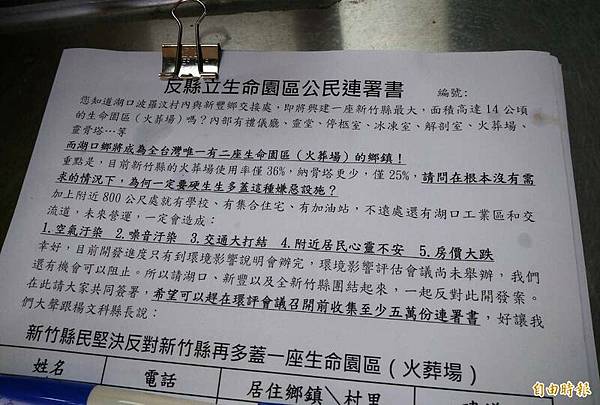 反縣立生命園區公民連署書 編號:
您知道湖口波羅汶村內與新豐鄉交接處，即將興建一座新竹縣最大，面積高達 14 公頃
的生命園區（火葬場）嗎？內部有禮儀廳、靈堂、停柩室、冰凍室、解剖室、火葬場、
靈骨塔…等
而湖口鄉將成為全台灣唯一有二座生命園區（火葬場）的鄉鎮！
重點是，目前新竹縣的火葬場使用率僅 36%，納骨塔更少，僅 25%，請問在根本沒有需
求的情況下，為何一定要硬生生多蓋這種嫌惡設施？
加上附近 800 公尺處就有學校、有集合住宅、有加油站，不遠處還有湖口工業區和交
流道，未來營運，一定會造成：
1.空氣汙染 2.噪音汙染 3.交通大打結 4.附近居民心靈不安 5.房價大跌
幸好，目前開發進度只有到環境影響說明會辦完，環境影響評估會議尚未舉辦，我們
還有機會可以阻止。所以請湖口、新豐以及全新竹縣團結起來，一起反對此開發案。
在此請大家共同簽署，希望可以趕在環評會議召開前收集至少五萬份連署書，好讓我
們大聲跟楊文科縣長說：
新竹縣民堅決反對新竹縣再多蓋一座生命園區（火葬場）
姓名 電話 居住鄉鎮＼村里
自由時報